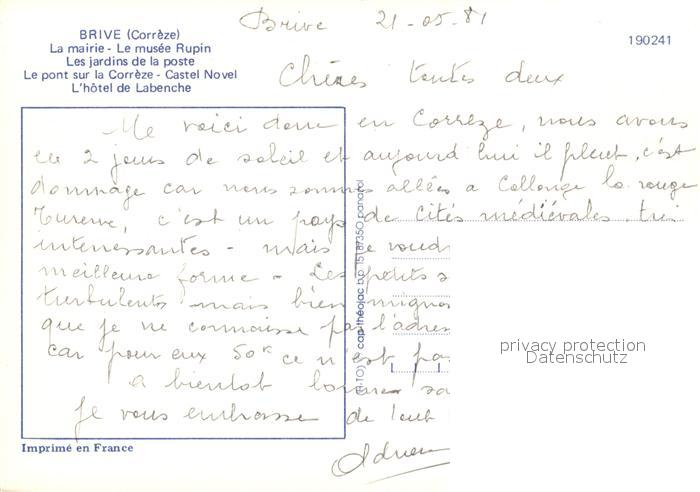 Brive 21-05-81
BRIVE (Corrèze)
La mairie - Le musée Rupin
Les jardins de la poste
Le pont sur la Corrèze - Castel Novel
L'hôtel de Labenche
190241
Chères toutes deux
Me voici donc en Corrèze, nous avons
eu 2 jours de soleil et aujourd hui il pleut, c'est
dommage car nous sommes allées a Collonge la rouge
Turenne, c'est un pays de cités médiévales très
interessantes - mais je voud
meilleure forme - Les petits s
turbulents mais bien mignon
que je ne connaisse pas l'adres
car pour eux 50 ce n'est pas
A bientot bonne sa
Je vous embrasse de tout
Adrien
(H-TO) cap-théojac b.p. 1518/350 panazol
privacy protection
Datenschutz
Imprimé en France